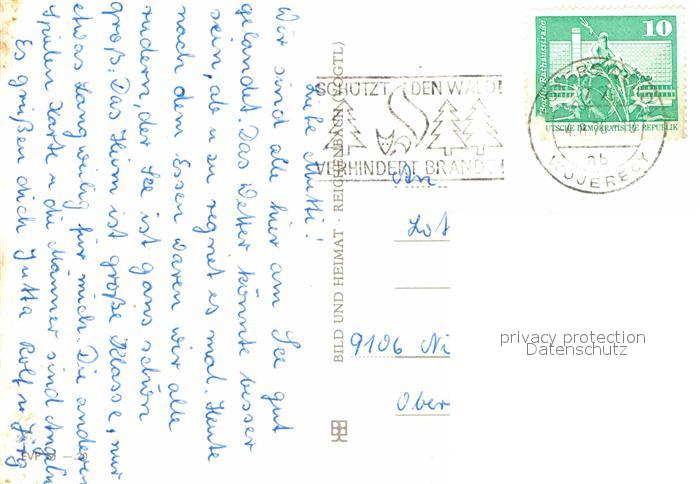 Liebe Mutti!
Wir sind alle hier am See gut
gelandet. Das Wetter könnte besser
sein, ab u zu regnet es mal. Heute
nach dem Essen waren wir alle
rudern, der See ist ganz schön
groß. Das Heim ist große Klasse, nur
etwas langweilig für mich. Die anderen
spielen Karten u die Männer sind Angeln
Es grüßen dich Jutta Rolf u Jörg
EVP
BILD UND HEIMAT · REICHENBACH (VOGTL)
SCHÜTZT DEN WALD!
VERHINDERT BRÄNDE!
10
Berlin, Rathausstraße
DEUTSCHE DEMOKRATISCHE REPUBLIK
ab
WOJERECY
An
Lot
9106 Ni
Ober
privacy protection
Datenschutz